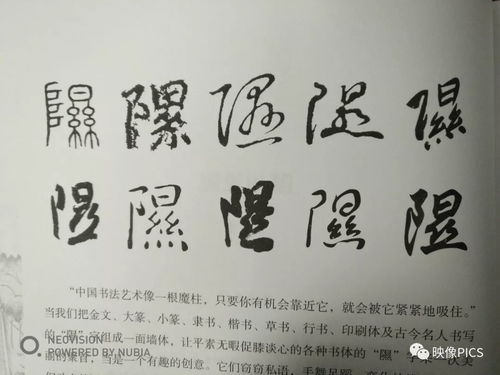 隰 隰 隰 隰 隰
隰 隰 隰 隰 隰
“中国书法艺术像一根魔柱，只要你有机会靠近它，就会被它紧紧地吸住。”
当我们把金文、大篆、小篆、隶书、楷书、草书、行书、印刷体及古今名人书写
的“隰”字组成一面墙体，让平素无暇促膝谈心的各种书体的“隰”
当是一个有趣的创意。它们窃窃私语，手舞足蹈，
NEOVISION
POWERED BY NUBIA
映像PICS